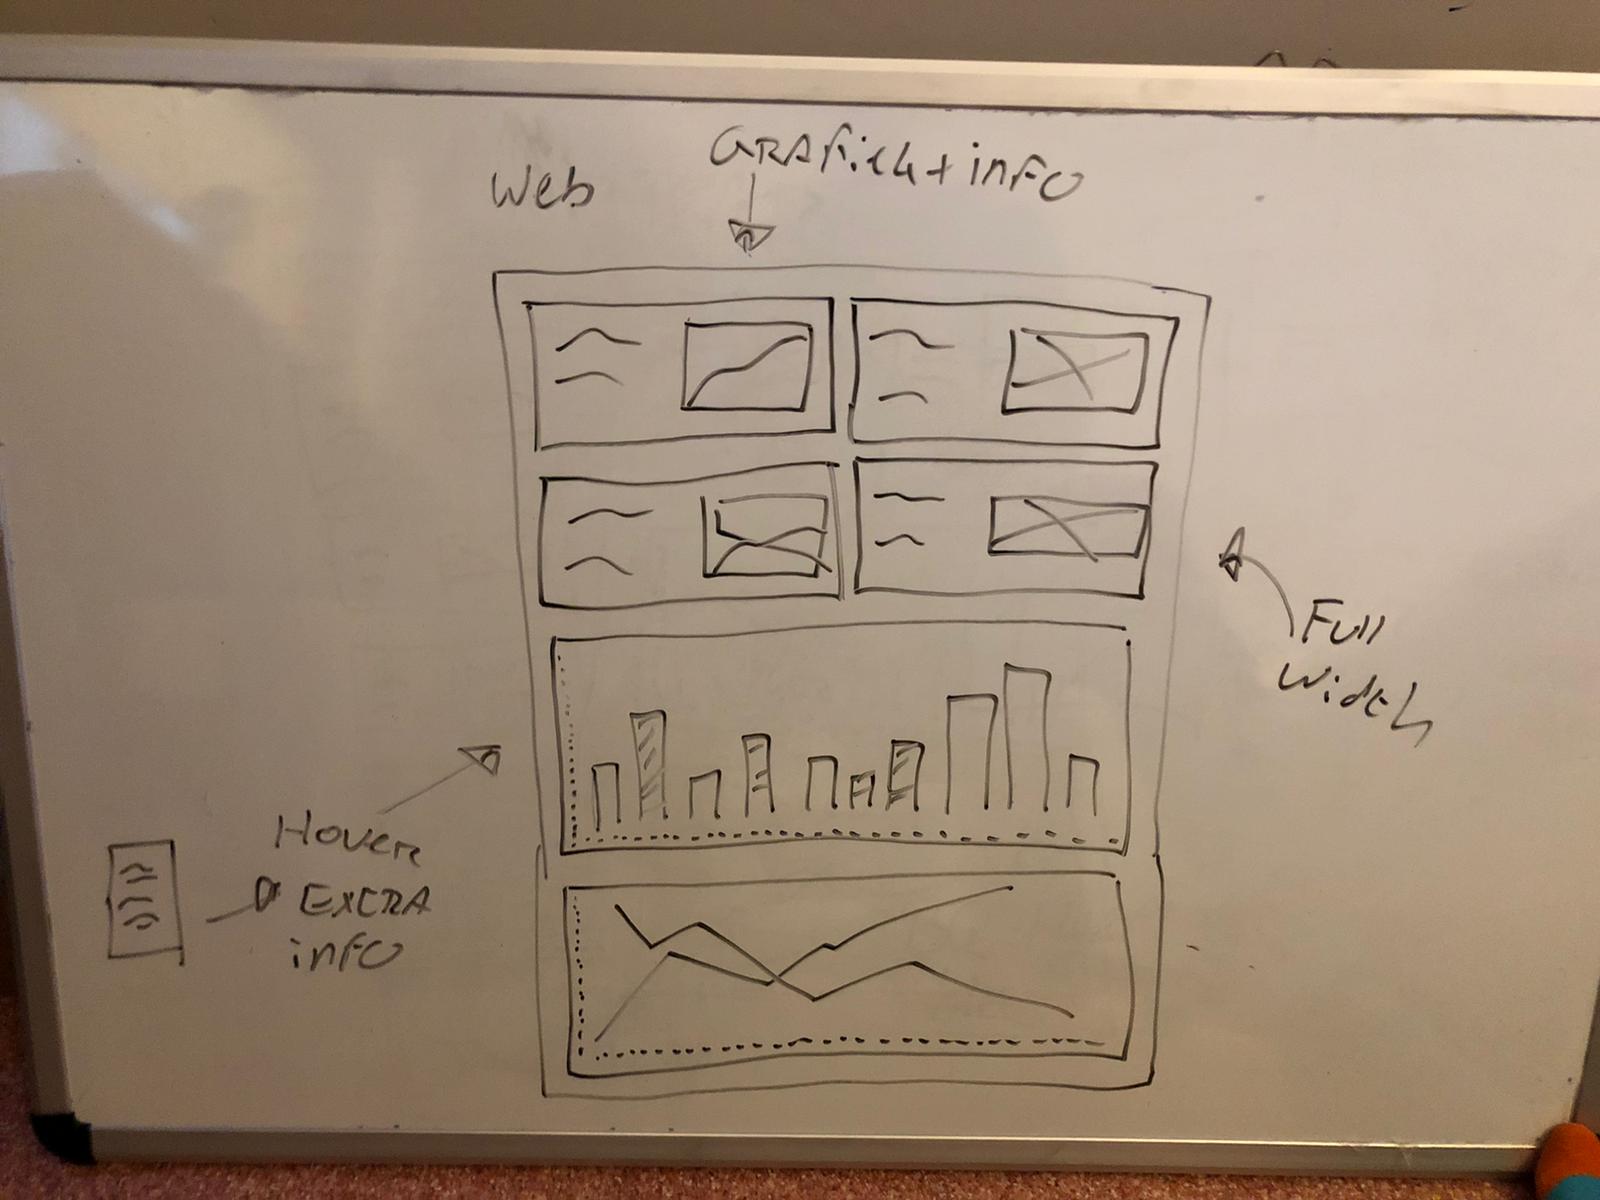 Web
GRAfiek + infO
Full
Width
Hover
EXTRA
infO